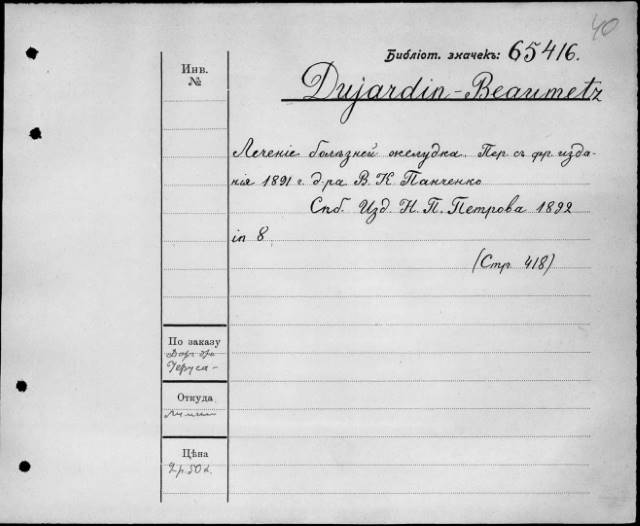 40
Библіот. значекъ: 65416.
Инв.
№
Dujardin-Beaumetz
Леченіе болѣзней желудка. Пер. съ фр. изда-
нія 1891 г. д-ра В. К. Панченко
Спб. Изд. Н. П. Петрова 1892
in 8
(Стр. 418)
По заказу
Откуда
Цѣна
2 р. 50 к.